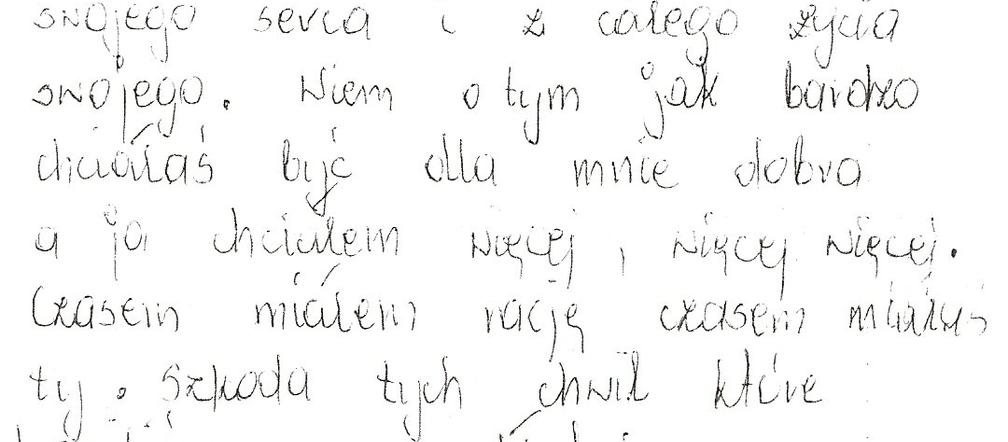 swojego serca i z całego życia
swojego. Wiem o tym jak bardzo
chciałaś być dla mnie dobra
a ja chciałem więcej, więcej więcej.
Czasem miałem rację czasem miałaś
ty. Szkoda tych chwil które